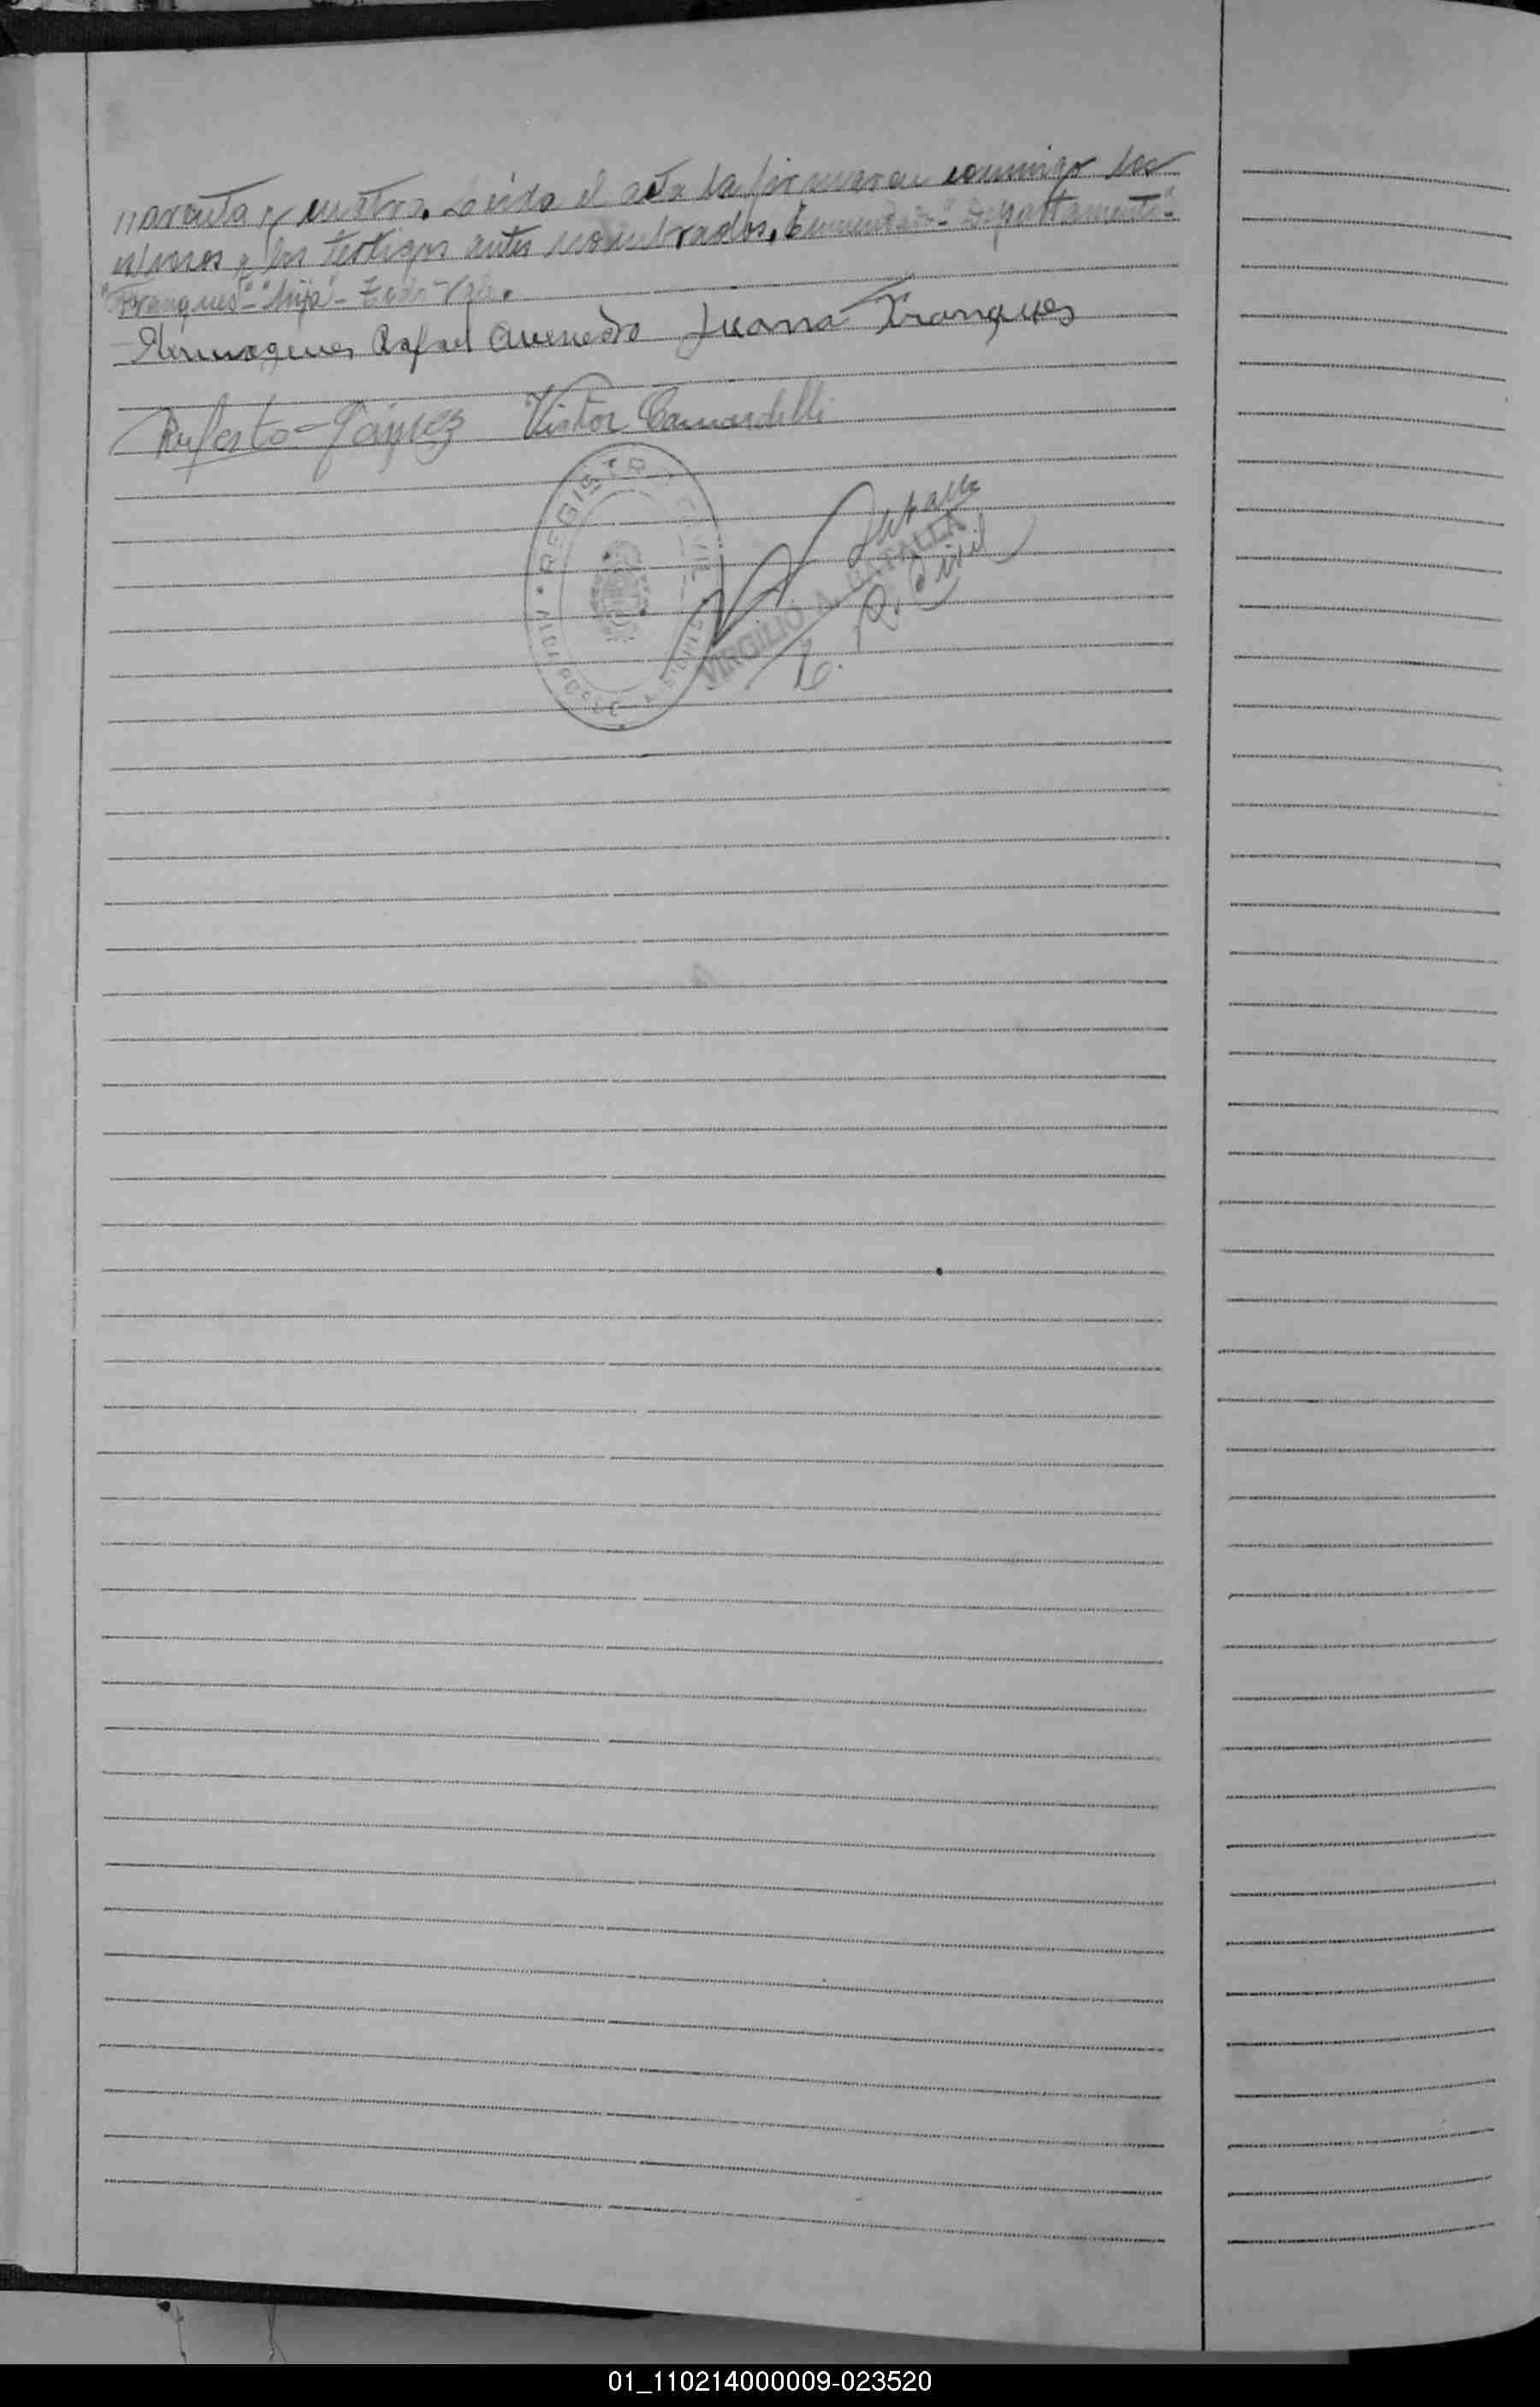 //arenta y cuatro. Leida el acta la firmaron conmigo los
esposos y los testigos antes nombrados. Enmendado-"Departamento"-
"Franques"-"hija"- Todo Vale.
Hermogenes Rafael Avenedo Juana Franques
Ruferto Victor Camardelli
REGISTRO CIVIL
VIRGILIO A. BATALLA
E. R. Civil
01_110214000009-023520